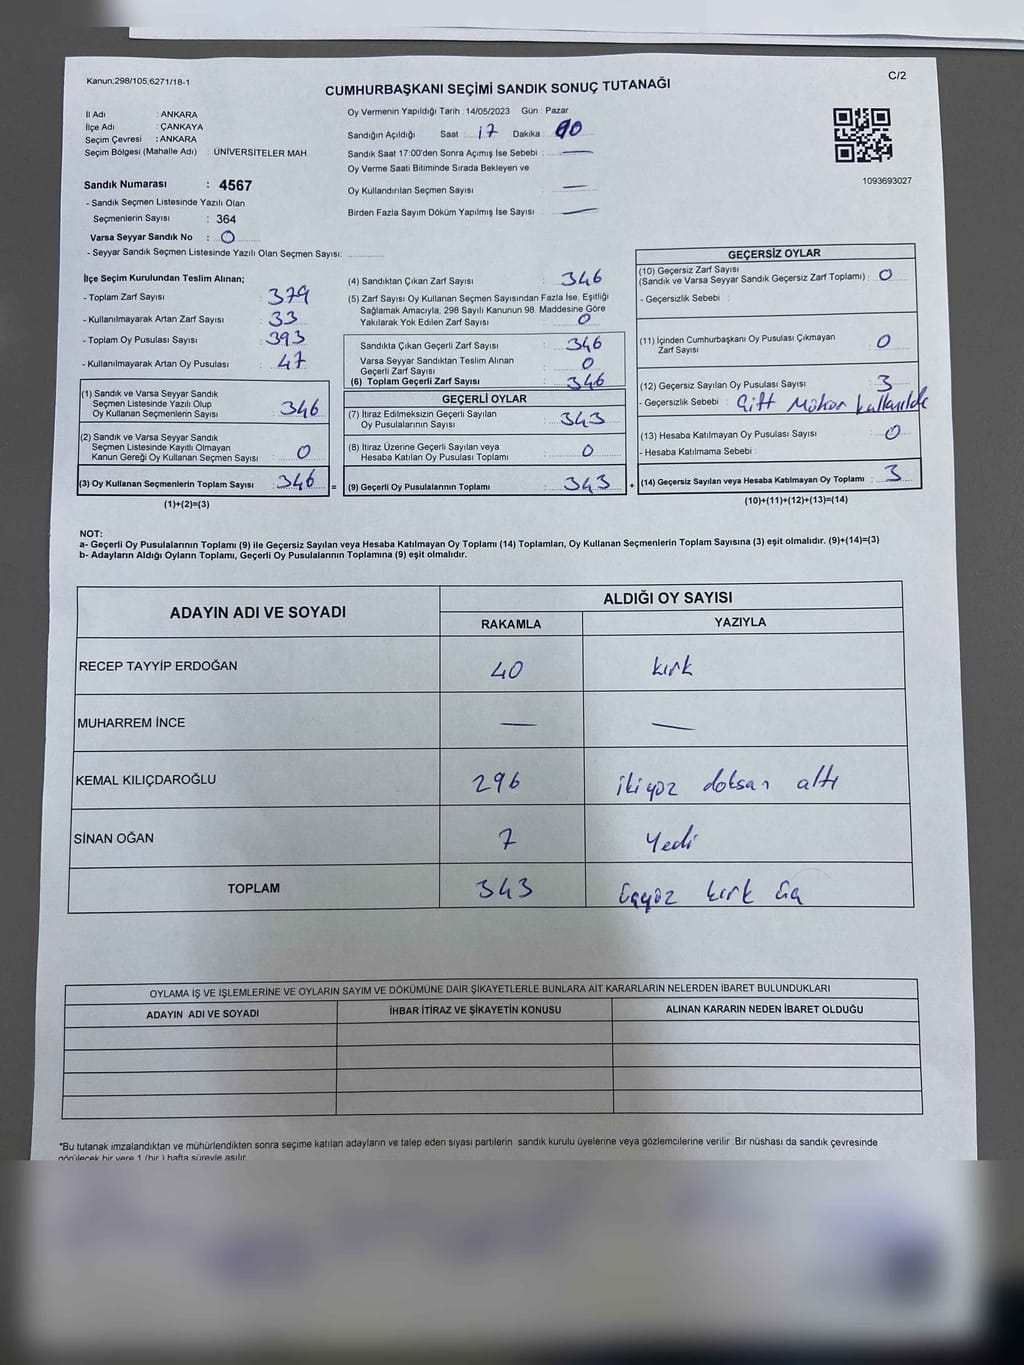 Kanun;298/105,6271/18-1
C/2
CUMHURBAŞKANI SEÇİMİ SANDIK SONUÇ TUTANAĞI
İl Adı : ANKARA
İlçe Adı : ÇANKAYA
Seçim Çevresi : ANKARA
Seçim Bölgesi (Mahalle Adı) : ÜNİVERSİTELER MAH.
Oy Vermenin Yapıldığı Tarih : 14/05/2023 Gün : Pazar
Sandığın Açıldığı Saat : 17 Dakika :
Sandık Saat 17:00'den Sonra Açımış İse Sebebi : —
Oy Verme Saati Bitiminde Sırada Bekleyen ve
Oy Kullandırılan Seçmen Sayısı : —
Birden Fazla Sayım Döküm Yapılmış İse Sayısı : —
1093693027
Sandık Numarası : 4567
- Sandık Seçmen Listesinde Yazılı Olan
Seçmenlerin Sayısı : 364
Varsa Seyyar Sandık No : 0
- Seyyar Sandık Seçmen Listesinde Yazılı Olan Seçmen Sayısı:
İlçe Seçim Kurulundan Teslim Alınan;
- Toplam Zarf Sayısı : 379
- Kullanılmayarak Artan Zarf Sayısı : 33
- Toplam Oy Pusulası Sayısı : 393
- Kullanılmayarak Artan Oy Pusulası : 47
(1) Sandık ve Varsa Seyyar Sandık
Seçmen Listesinde Yazılı Olup
Oy Kullanan Seçmenlerin Sayısı : 346
(2) Sandık ve Varsa Seyyar Sandık
Seçmen Listesinde Kayıtlı Olmayan
Kanun Gereği Oy Kullanan Seçmen Sayısı : 0
(3) Oy Kullanan Seçmenlerin Toplam Sayısı : 346 =
(1)+(2)=(3)
(4) Sandıktan Çıkan Zarf Sayısı : 346
(5) Zarf Sayısı Oy Kullanan Seçmen Sayısından Fazla İse, Eşitliği
Sağlamak Amacıyla, 298 Sayılı Kanunun 98. Maddesine Göre
Yakılarak Yok Edilen Zarf Sayısı : 0
Sandıkta Çıkan Geçerli Zarf Sayısı : 346
Varsa Seyyar Sandıktan Teslim Alınan
Geçerli Zarf Sayısı : 0
(6) Toplam Geçerli Zarf Sayısı : 346
GEÇERLİ OYLAR
(7) İtiraz Edilmeksizin Geçerli Sayılan
Oy Pusulalarının Sayısı : 343
(8) İtiraz Üzerine Geçerli Sayılan veya
Hesaba Katılan Oy Pusulası Toplamı : 0
(9) Geçerli Oy Pusulalarının Toplamı : 343 +
GEÇERSİZ OYLAR
(10) Geçersiz Zarf Sayısı
(Sandık ve Varsa Seyyar Sandık Geçersiz Zarf Toplamı) : 0
- Geçersizlik Sebebi :
(11) İçinden Cumhurbaşkanı Oy Pusulası Çıkmayan
Zarf Sayısı : 0
(12) Geçersiz Sayılan Oy Pusulası Sayısı : 3
- Geçersizlik Sebebi : Çift Mühür kullanıldı
(13) Hesaba Katılmayan Oy Pusulası Sayısı : 0
- Hesaba Katılmama Sebebi :
(14) Geçersiz Sayılan veya Hesaba Katılmayan Oy Toplamı : 3
(10)+(11)+(12)+(13)=(14)
NOT:
a- Geçerli Oy Pusulalarının Toplamı (9) ile Geçersiz Sayılan veya Hesaba Katılmayan Oy Toplamı (14) Toplamları, Oy Kullanan Seçmenlerin Toplam Sayısına (3) eşit olmalıdır. (9)+(14)=(3)
b- Adayların Aldığı Oyların Toplamı, Geçerli Oy Pusulalarının Toplamına (9) eşit olmalıdır.
ADAYIN ADI VE SOYADI
ALDIĞI OY SAYISI
RAKAMLA YAZIYLA
RECEP TAYYİP ERDOĞAN 40 kırk
MUHARREM İNCE — —
KEMAL KILIÇDAROĞLU 296 ikiyüz doksan altı
SİNAN OĞAN 7 Yedi
TOPLAM 343 Üçyüz kırk üç
OYLAMA İŞ VE İŞLEMLERİNE VE OYLARIN SAYIM VE DÖKÜMÜNE DAİR ŞİKAYETLERLE BUNLARA AİT KARARLARIN NELERDEN İBARET BULUNDUKLARI
ADAYIN ADI VE SOYADI İHBAR İTİRAZ VE ŞİKAYETİN KONUSU ALINAN KARARIN NEDEN İBARET OLDUĞU
*Bu tutanak imzalandıktan ve mühürlendikten sonra seçime katılan adayların ve talep eden siyasi partilerin sandık kurulu üyelerine veya gözlemcilerine verilir. Bir nüshası da sandık çevresinde
görülecek bir yere 1 (bir ) hafta süreyle asılır.